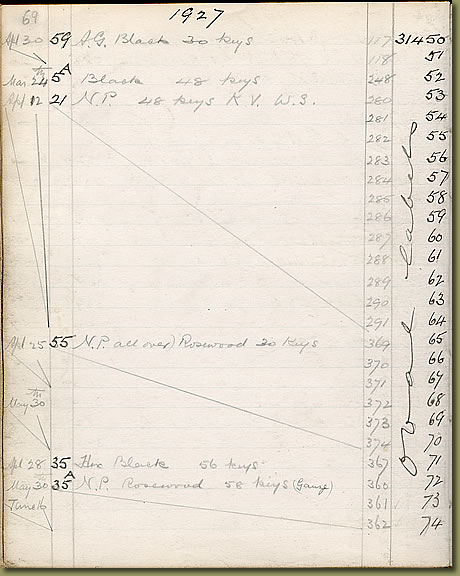 69 1927
Apl 30 59 A.G. Black 30 keys 117 31450
118 51
Mar 24th 5A Black 48 keys 248 52
Apl 12 21 N.P 48 keys R.V. W.S. 280 53
281 54
282 55
283 56
284 57
285 58
286 59
287 60
288 61
289 62
290 63
291 64
Apl 25 55 N.P. all over) Rosewood 30 keys 369 65
370 66
371 67
May 30th 372 68
373 69
374 70
Apl 28 35 Hex Black 56 keys 367 71
May 30 35A N.P. Rosewood 58 keys (Gauze) 360 72
June 16 361 73
362 74
Oval Labels